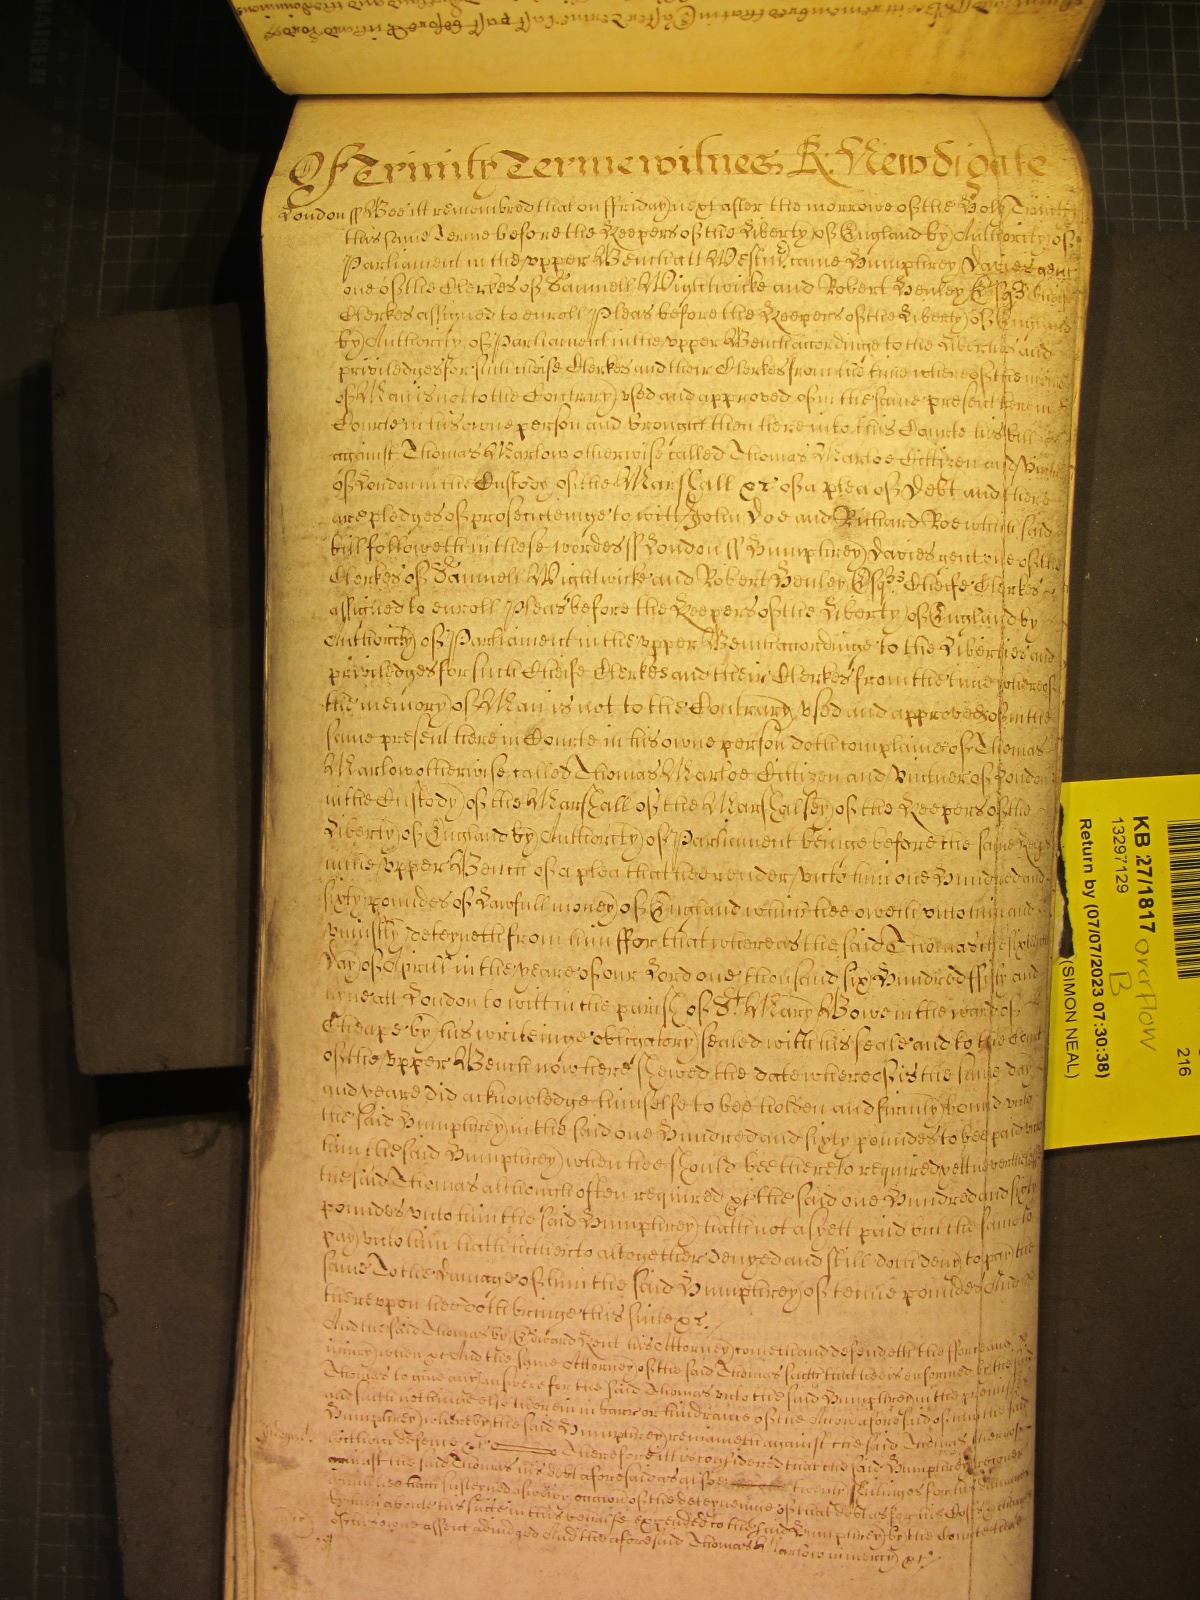 Of Trinity Terme witnes R. Newdigate
London ss Bee itt remembred that on ffriday next after the morrowe of the Holy Trinity
this same Terme before the Keepers of the Liberty of England by Authority of
Parliament in the vpper Bench att Westmr came Humphrey Davies gent
one of the Clerkes of Samuell Wightwicke and Robert Henley Esqrs Cheife
Clerkes assigned to enroll Pleas before the Keepers of the Liberty of England
by Authority of Parliament in the vpper Bench accordinge to the Liberties and
priviledges for such cheife Clerkes and their Clerkes from the time whereof the memory
of Man is not to the Contrary vsed and approved of in the same present here in
Courte in his owne person and brought then here into this Courte his bill
against Thomas Marlow otherwise called Thomas Marloe Cittizen and Vintner
of London in the Custody of the Marshall &c of a plea of Debt and there
are pledges of prosecuteinge to witt John Doe and Richard Roe which said
bill followeth in these wordes ss London ss Humphrey Davies gent one of the
Clerkes of Samuell Wightwicke and Robert Henley Esqrs Cheife Clerkes
assigned to enroll Pleas before the Keepers of the Liberty of England by
Authority of Parliament in the vpper Bench accordinge to the Liberties and
priviledges for such Cheife Clerkes and their Clerkes from the time whereof
the memory of Man is not to the Contrary vsed and approved of in the
same present here in Courte in his owne person doth complaine of Thomas
Marlow otherwise called Thomas Marloe Cittizen and Vintner of London
in the Custody of the Marshall of the Marshalsey of the Keepers of the
Liberty of England by Authority of Parliament beinge before the same Keepers
in the vpper Bench of a plea that hee render vnto him one Hundred and
sixty poundes of Lawfull money of England which hee oweth vnto him and
vniustly deteyneth from him ffor that whereas the said Thomas the sixteenth
day of Aprill in the yeare of our Lord one thousand six Hundred fifty and
nyne att London to witt in the parish of St Mary Bowe in the ward of
Cheape by his writeinge obligatory sealed with his seale and to the Court
of the vpper Bench now here shewed the date whereof is the same day
and yeare did acknowledge himselfe to bee holden and firmly bound vnto
the said Humphrey in the said one Hundred and sixty poundes to bee paid vnto
him the said Humphrey when hee should bee thereto required yett neverthelesse
the said Thomas although often required &c the said one Hundred and sixty
poundes vnto him the said Humphrey hath not as yett paid but the same to
pay vnto him hath hitherto altogether denyed and still doth deny to pay the
same To the damage of him the said Humphrey of tenne poundes And
therevpon hee doth bringe this suite &c.
And the said Thomas by Edward Kent his Attorney cometh and defendeth the fforce and
iniury when &c And the same Attorney of the said Thomas saith that hee is not informed by the said
Thomas to give any answere for the said Thomas vnto the said Humphrey in the premisses
and saith nothinge else therein in barr or hindrance of the Accon aforesaid of him the said
Humphrey whereby the said Humphrey remaineth against the said Thomas thereof
without defence &c Therefore itt is considered that the said Humphrey recover
against the said Thomas his debt aforesaid as alsoe twenty shillings for his damages
which hee hath susteyned aswell by occasion of the deteyneinge of that debt as for his Costs & charges
by him aboute his suite in this behalfe expended to the said Humphrey by the Courte here
of his owne assent adiudged And the aforesaid Thomas Marlow in mercy &c
Judgmt
KB 27/1817
overflow
B
13297129
Return by (07/07/2023 07:30:38)
(SIMON NEAL)
216